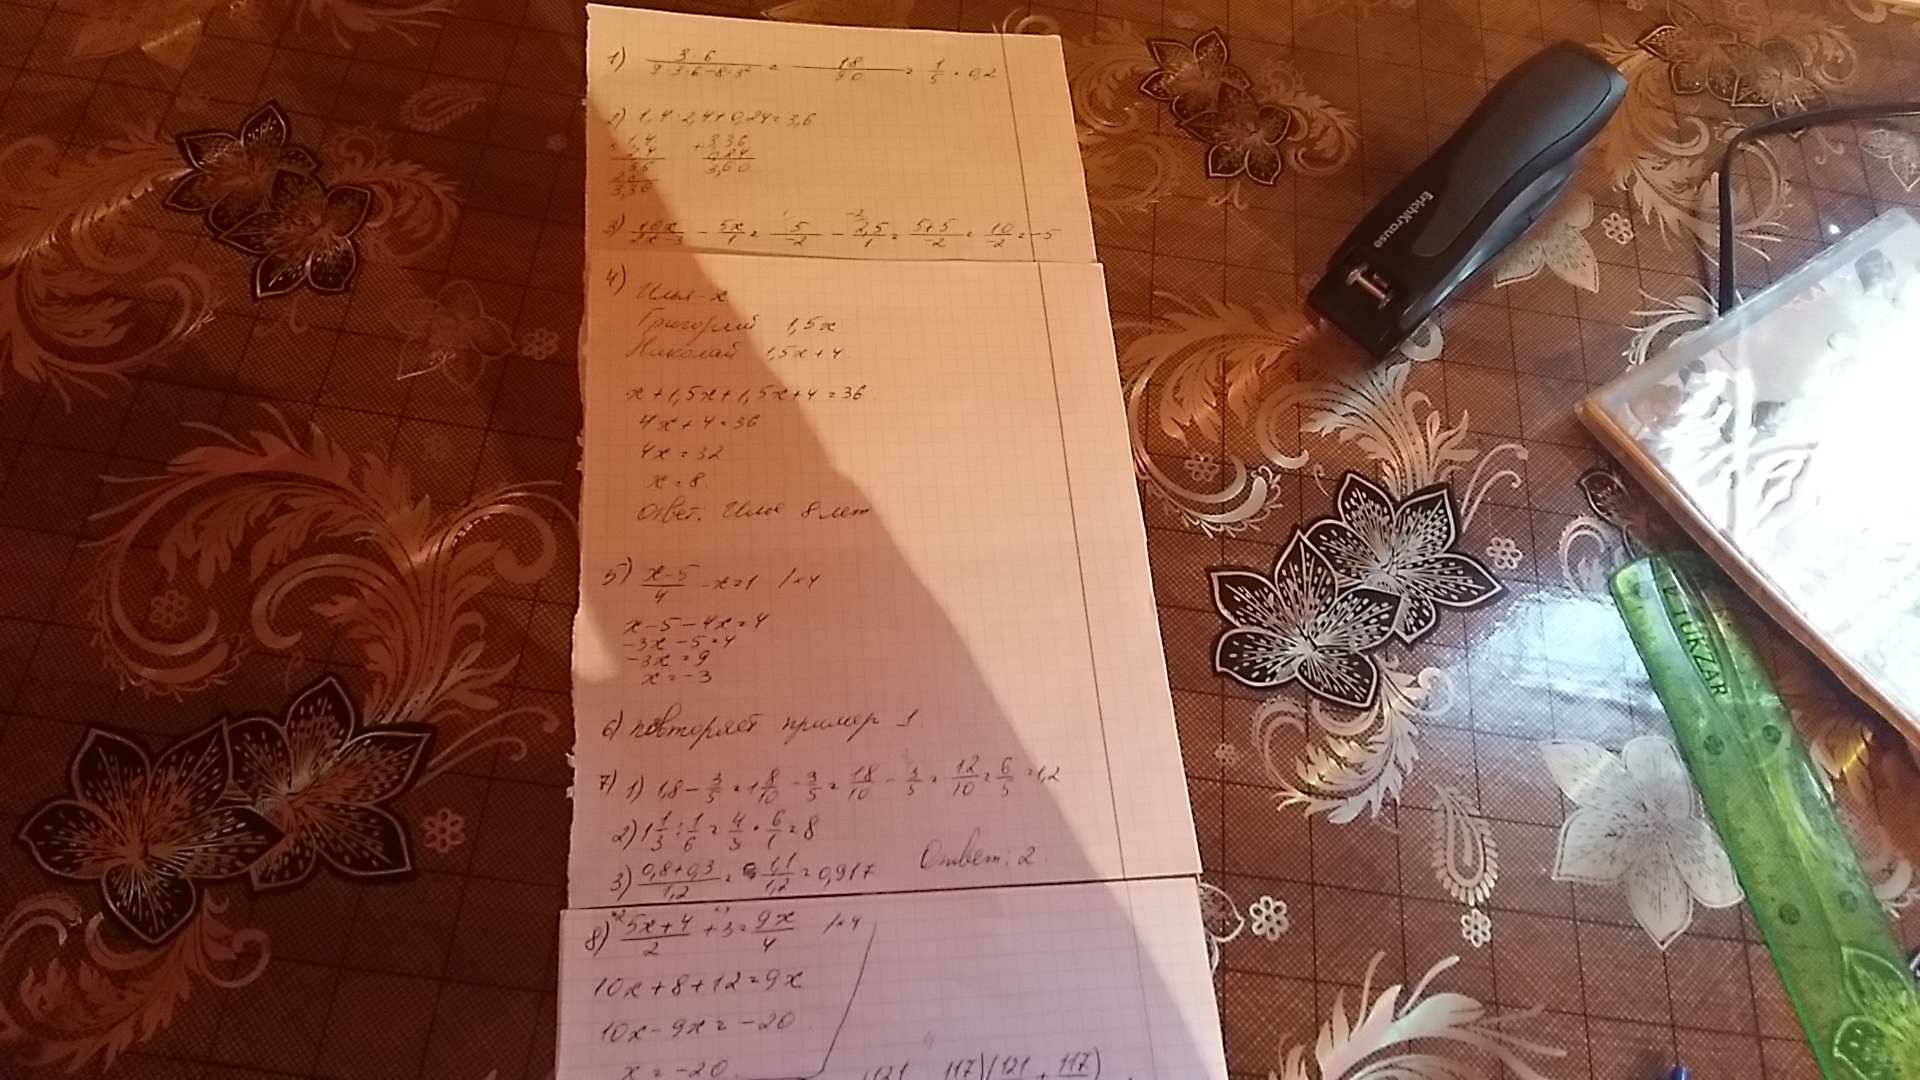 1) 3·6 / 9·3·6-8·3² = 18/90 = 1/5 = 0,2
2) 1,4·2,4+0,24=3,6
1,4
2,4
3,36
+ 3,36
0,24
3,60
3) 10x/2x-3 - 5x/1 = 5/-2 - 2,5/1 = 5+5/-2 = 10/-2 = -5
4)
Илья - x
Григорий 1,5x
Николай 1,5x+4
x+1,5x+1,5x+4=36
4x+4=36
4x=32
x=8.
Ответ: Илье 8 лет
5) x-5/4 - x=1 /×4
x-5-4x=4
-3x-5=4
-3x=9
x=-3
6) повторяет пример 1
7) 1) 1,8 - 3/5 = 1 8/10 - 3/5 = 18/10 - 3/5 = 12/10 = 6/5 = 1,2
2) 1 1/3 : 1/6 = 4/3 · 6/1 = 8
3) 0,8+0,3/1,2 = 1,1/1,2 = 0,917
Ответ: 2
8) 5x+4/2 + 3 = 9x/4 /×4
10x+8+12=9x
10x-9x=-20
x=-20
(121 - 117)(121 + 117)
ErichKrause
LTUKZAR